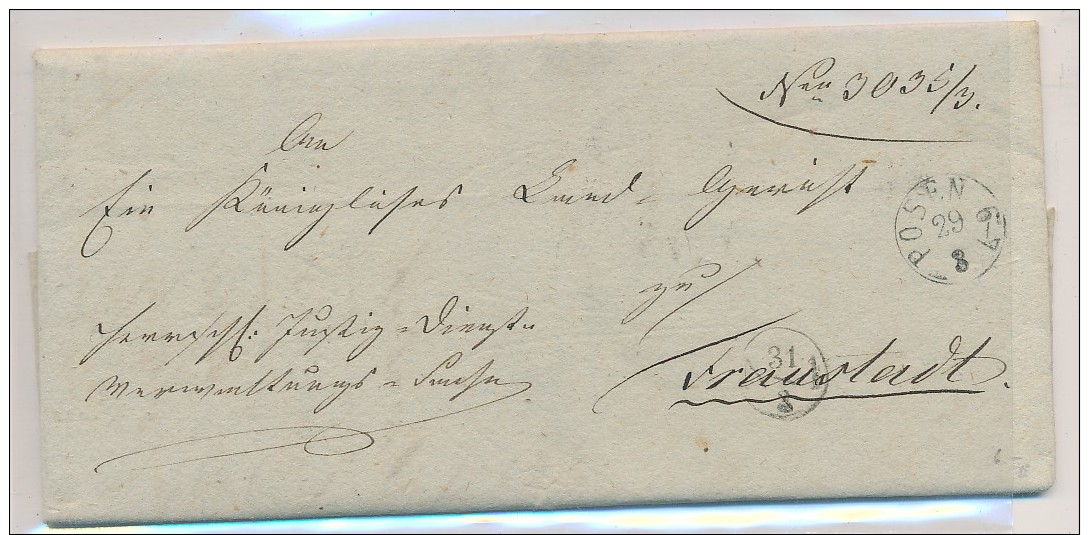 Nrn 3035/3.
An
Ein Königliches Land-Gericht
POSEN
29
8
6-7
zu
Herrschl: Justiz-Dienst-
Verwaltungs-Sache
31
8
Fraustadt.